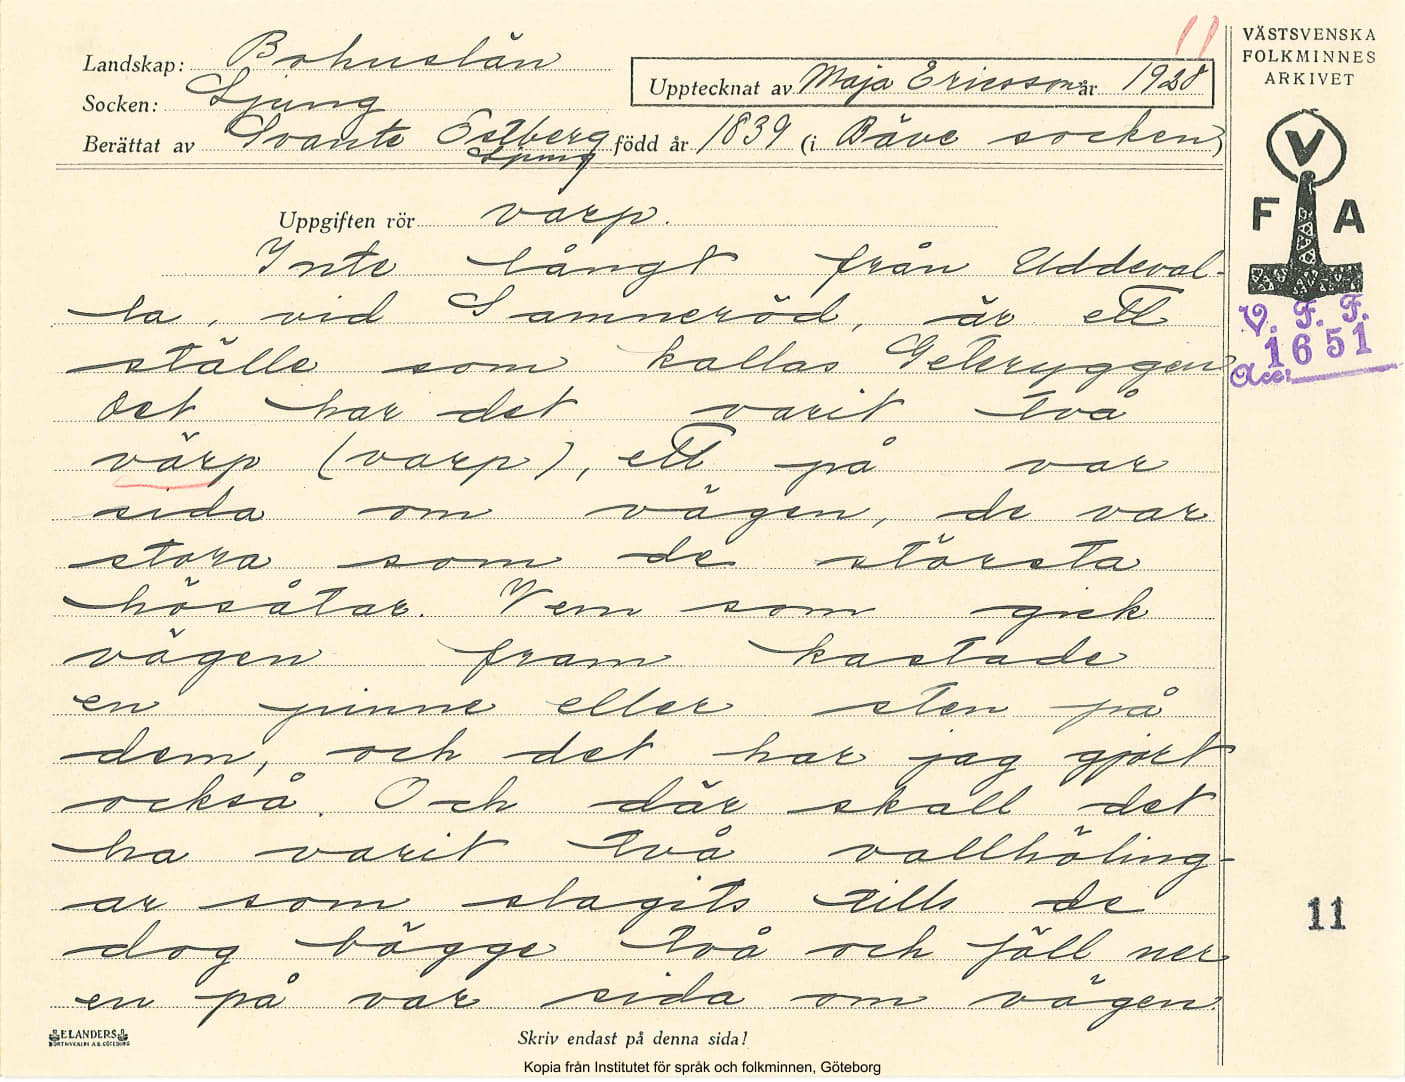 11
VÄSTSVENSKA
FOLKMINNES
ARKIVET
Landskap: Bohuslän
Socken: Ljung
Upptecknat av Maja Ericsson år 1928
Berättat av Svante Estberg född år 1839 (i Bäve socken)
Ljung
V
F A
Uppgiften rör varp.
Inte långt från Uddeval-
la, vid Samneröd, är ett
ställe som kallas Getryggen
Det har det varit två
värp (varp), ett på var
sida om vägen, de var
stora som de största
hösåtar. Vem som gick
vägen fram kastade
en pinne eller sten på
dem, och det har jag gjort
också. Och där skall det
ha varit två vallhöling-
ar som slagits tills de
dog bägge två och föll ner
en på var sida om vägen.
V. F. F.
1651
Acc:
11
ELANDERS
BOKTRYCKERI A.B. GÖTEBORG
Skriv endast på denna sida!
Kopia från Institutet för språk och folkminnen, Göteborg